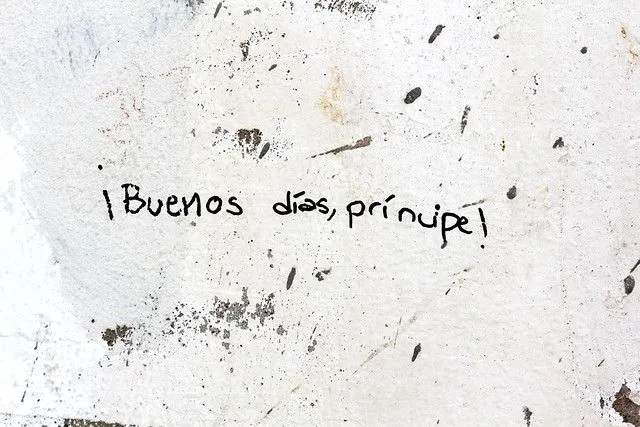 ¡Buenos días, príncipe!